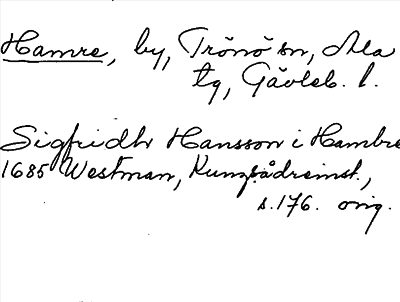 Hamre, by, Trönö sn, Ala
tg, Gävleb. l.
Sigfridh Hansson i Hambre
1685 Westman, Kungsådreinst.,
s.176. orig.